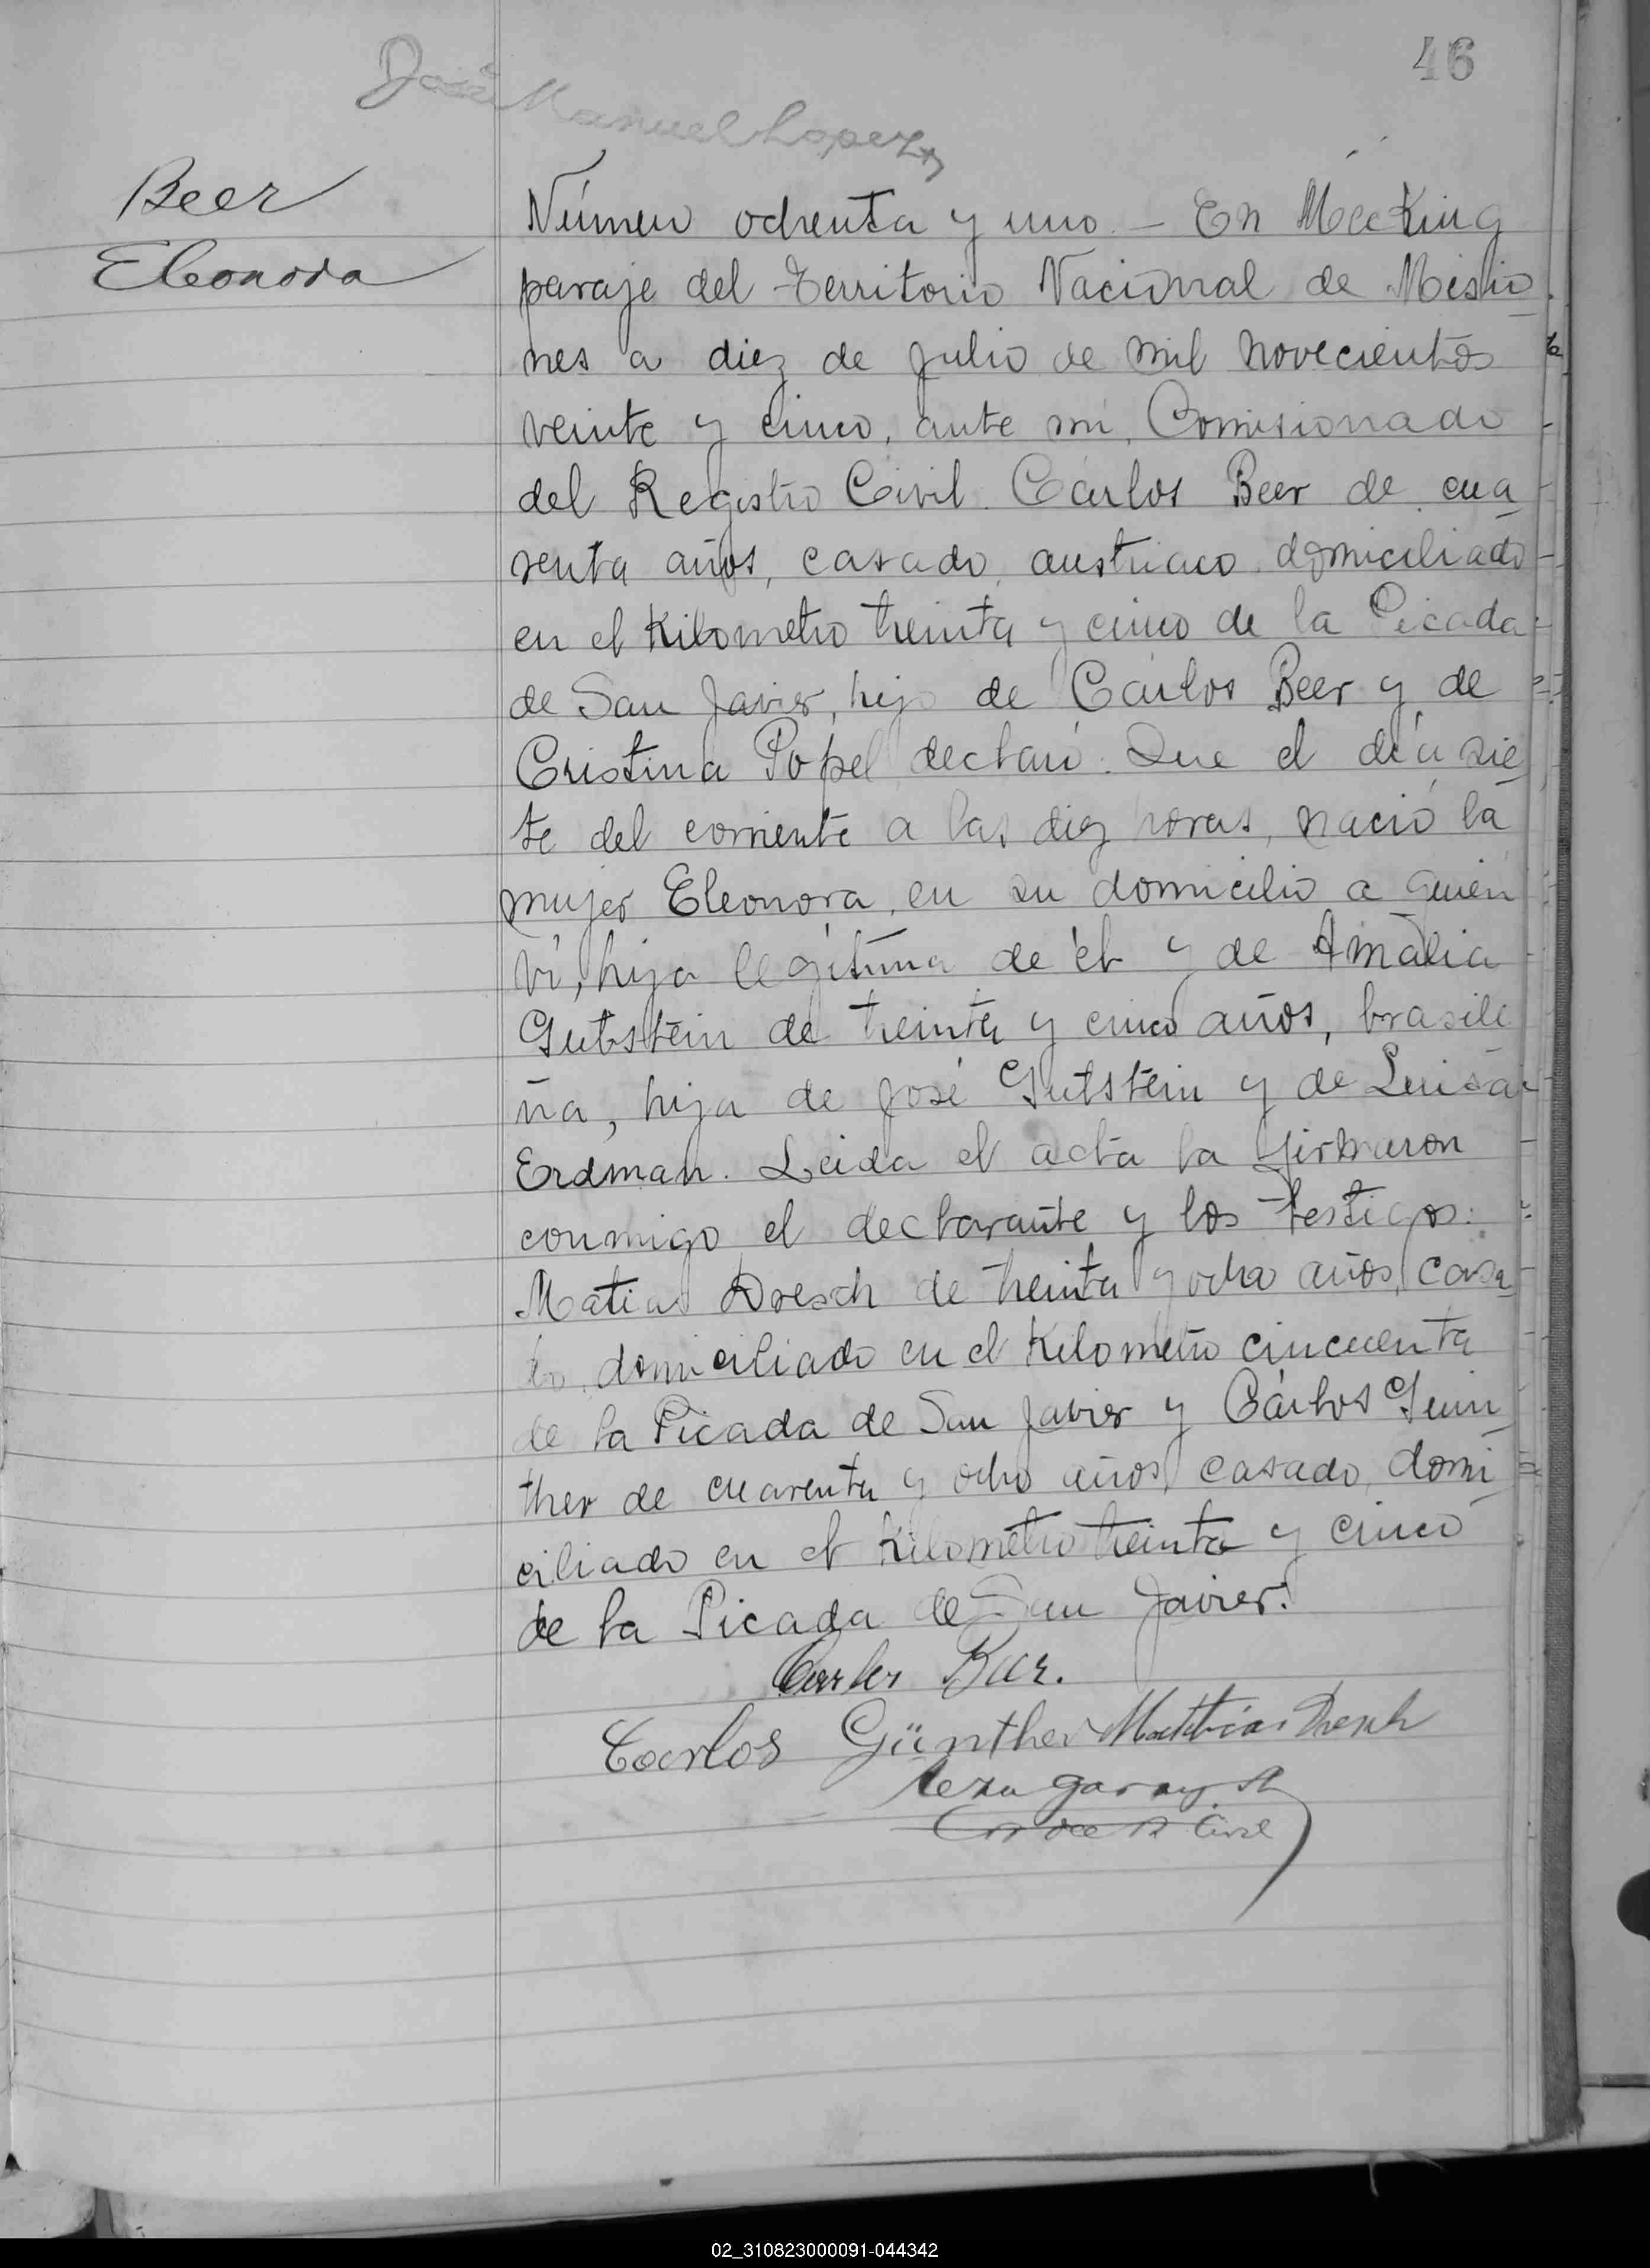 46
José Manuel Lopez
Beer
Eleonora
Número ochenta y uno. – En MecKing
paraje del Territorio Nacional de Misio
nes a diez de Julio de mil novecientos
veinte y cinco, ante mi, Comisionado
del Registro Civil. Cárlos Beer de cua
renta años, casado, austriaco domiciliado
en el Kilometro treinta y cinco de la Picada
de San Javier, hijo de Cárlos Beer y de
Cristina Popel declaró: Que el día sie
te del corriente a las diez horas, nació la
mujer Eleonora, en su domicilio a quien
ví, hija legítima de él y de Amalia
Gutstein de treinta y cinco años, brasile
ña, hija de José Gutstein y de Luisa
Erdman. Leida el acta la firmaron
conmigo el declarante y los testigos:
Matias Dresch de treinta y ocho años, casa
do, domiciliado en el Kilometro cincuenta
de la Picada de San Javier y Cárlos Guin
ther de cuarenta y ocho años, casado, domi
ciliado en el Kilometro treinta y cinco
de la Picada de San Javier.
Carlos Bär.
Carlos Günther Matthias Dresch
Civil
02_310823000091-044342